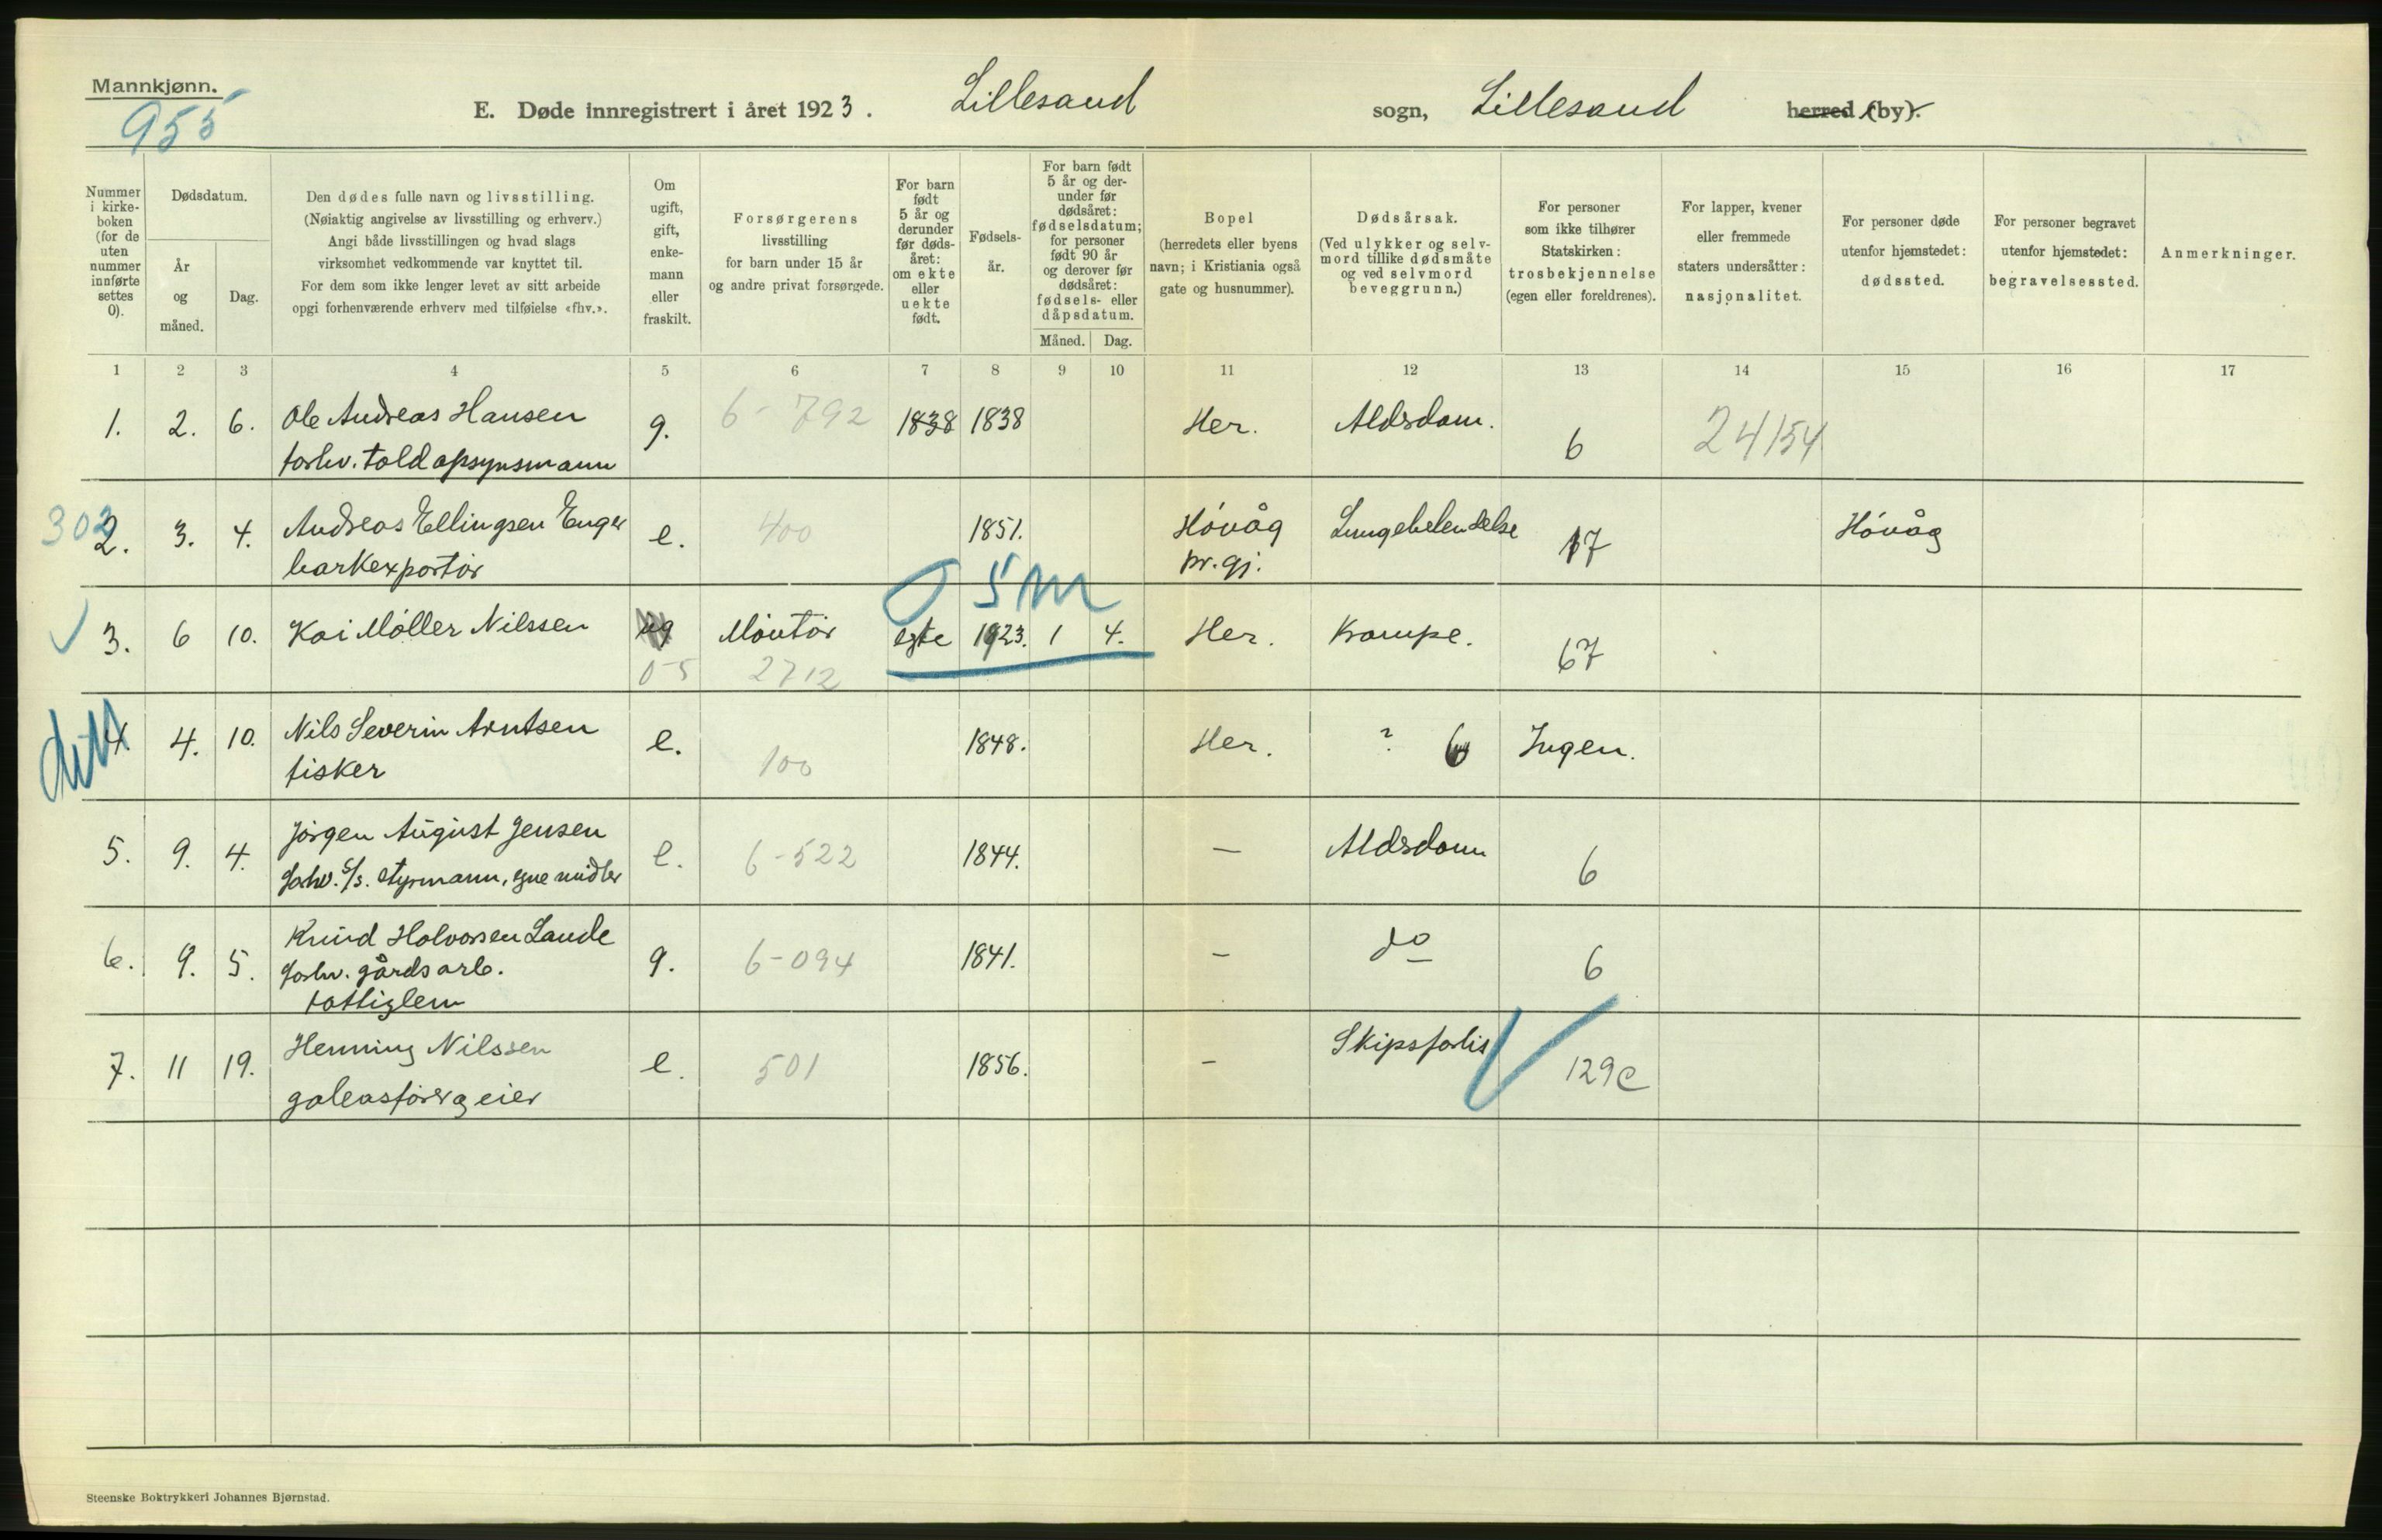 Mannkjønn.
955
E. Døde innregistrert i året 1923. Lillesand sogn, Lillesand herred (by).
Nummer i kirke-boken (for de uten nummer innførte settes 0).
Dødsdatum.
År og måned.
Dag.
Den dødes fulle navn og livsstilling.
(Nøiaktig angivelse av livsstilling og erhverv.)
Angi både livsstillingen og hvad slags
virksomhet vedkommende var knyttet til.
For dem som ikke lenger levet av sitt arbeide
opgi forhenværende erhverv med tilføielse «fhv.».
Om ugift, gift, enke-mann eller fraskilt.
Forsørgerens
livsstilling
for barn under 15 år
og andre privat forsørgede.
For barn født 5 år og derunder før døds-året: om ekte eller uekte født.
Fødsels-år.
For barn født 5 år og der-under før dødsåret: fødselsdatum; for personer født 90 år og derover før dødsåret: fødsels- eller dåpsdatum.
Måned. Dag.
Bopel
(herredets eller byens
navn; i Kristiania også
gate og husnummer).
Dødsårsak.
(Ved ulykker og selv-
mord tillike dødsmåte
og ved selvmord
beveggrunn.)
For personer
som ikke tilhører
Statskirken:
trosbekjennelse
(egen eller foreldrenes).
For lapper, kvener
eller fremmede
staters undersåtter:
nasjonalitet.
For personer døde
utenfor hjemstedet:
dødssted.
For personer begravet
utenfor hjemstedet:
begravelsessted.
Anmerkninger.
1 2 3 4 5 6 7 8 9 10 11 12 13 14 15 16 17
1. 2. 6. Ole Andreas Hansen g. 6-792 1838 1838 Her. Aldrdom. 6 24154
forhv. toldopsynsmann
302
2. 3. 4. Andreas Ellingsen Enger e. 400 1851. Høvåg Lungebetendelse 17 Høvåg
barkexportør pr. gj.
0 5 m
3. 6 10. Kai Møller Nilssen ug Montør egte 1923. 1 4. Her. Krampe. 67
05 2712
4 4. 10. Nils Severin Arntsen e. 100 1848. Her. ? 6 Ingen.
fisker
5. 9. 4. Jørgen August Jensen e. 6-522 1844. — Aldrdom 6
forhv. S/s. styrmann, egne midler
6. 9. 5. Knud Halvorsen Lande g. 6-094 1841. — do 6
forhv. gårdsarb.
fattiglem
7. 11 19. Henning Nilssen e. 501 1856. — Skipsforlis 129c
galeasfører og eier
Steenske Boktrykkeri Johannes Bjørnstad.